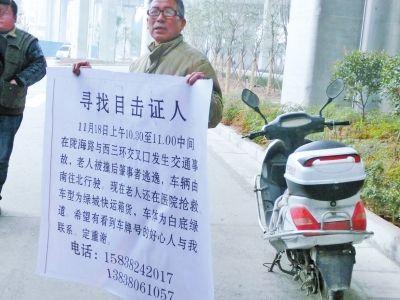 寻找目击证人
11月18日上午10.30至11.00中间
在陇海路与西三环交叉口发生交通事
故，老人被撞后肇事者逃逸，车辆由
南往北行驶。现在老人还在医院抢救
车型为绿城快运箱货，车体为白底绿
道。希望有看到车牌号的好心人与我
联系。定重谢。
电话：15838242017
13838061057